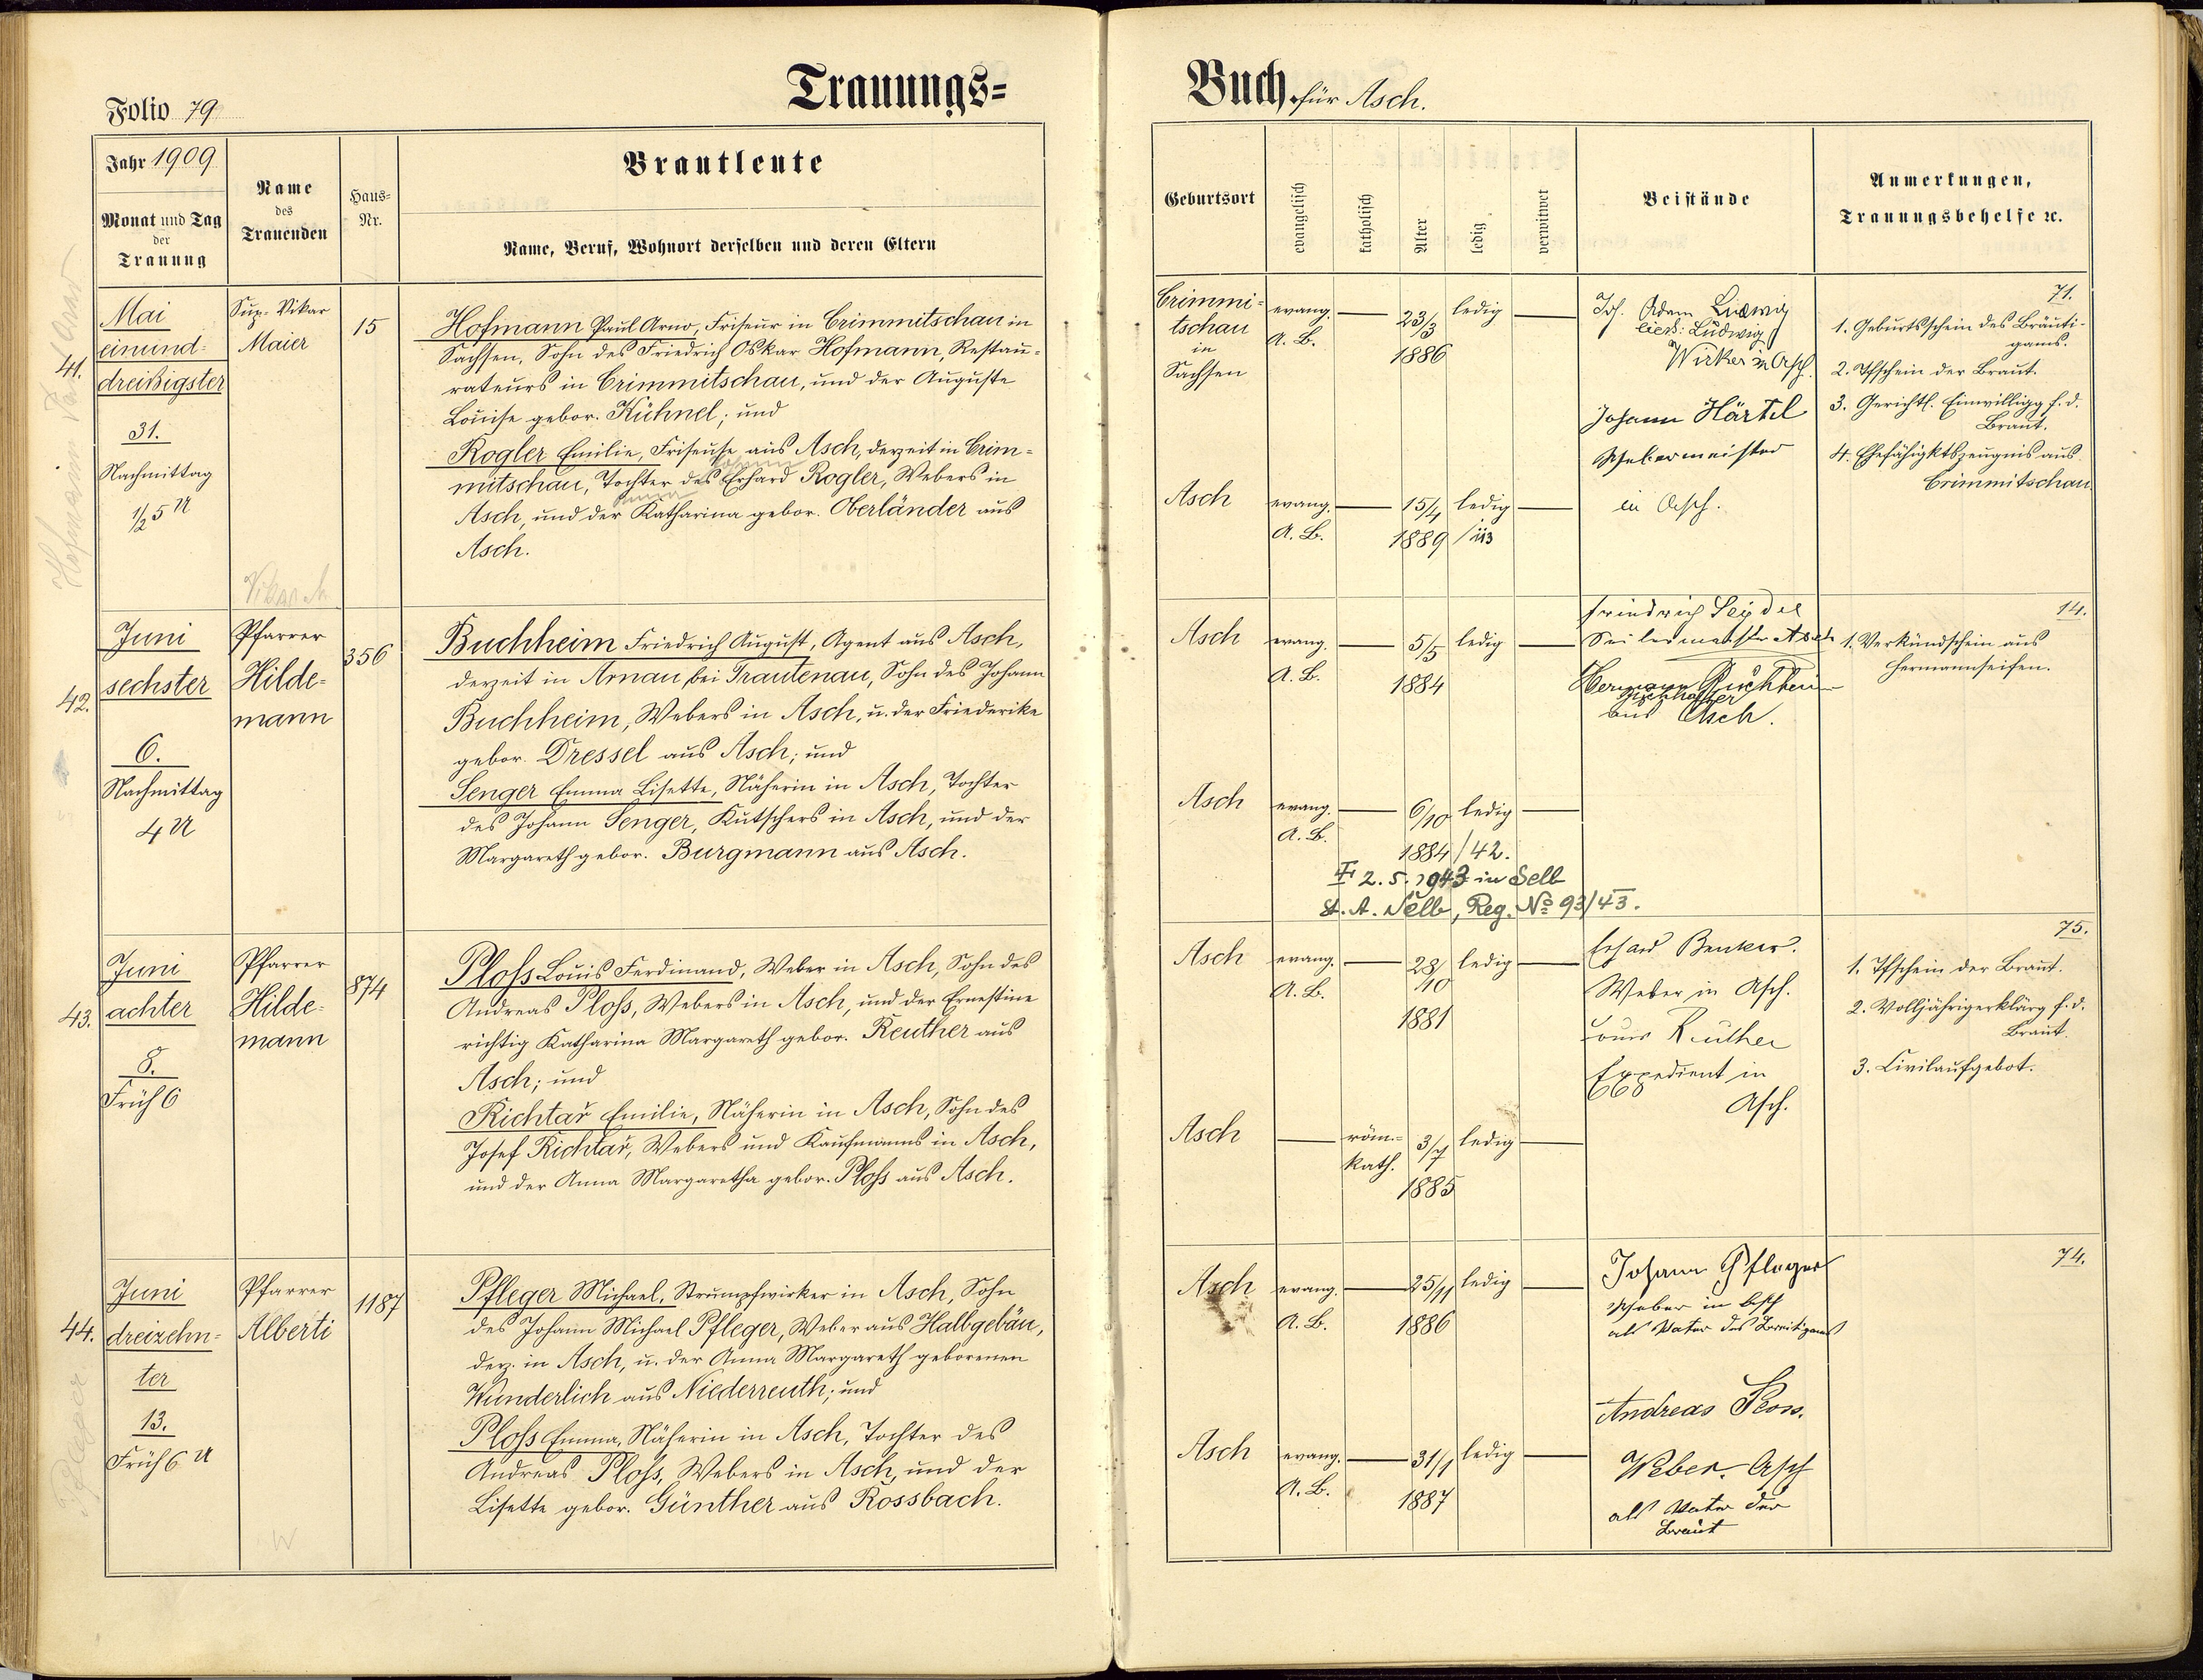 Trauungs=
Folio 79
Jahr 1909
Monat und Tag
der
Trauung
Name
des
Trauenden
Haus=
Nr.
Brautleute
Name, Beruf, Wohnort derselben und deren Eltern
41.
Mai
einund-
dreißigster
31.
Nachmittag
1/2 5 U
Sup. Vikar
Maier
15
Hofmann Paul Arno, Friseur in Crimmitschau in
Sachsen, Sohn des Friedrich Oskar Hofmann, Restau-
rateurs in Crimmitschau, und der Auguste
Louise gebor. Kühnel; und
Rogler Emilie, Friseuse aus Asch, derzeit in Crim-
mitschau, Tochter des Erhard Rogler, Webers in
Asch, und der Katharina gebor. Oberländer aus
Asch.
42.
Juni
sechster
6.
Nachmittag
4 U
Pfarrer
Hilde-
mann
356
Buchheim Friedrich August, Agent aus Asch,
derzeit in Arnau bei Trautenau, Sohn des Johann
Buchheim, Webers in Asch, u. der Friederike
gebor. Dressel aus Asch; und
Senger Emma Lisette, Näherin in Asch, Tochter
des Johann Senger, Kutschers in Asch, und der
Margareth gebor. Burgmann aus Asch.
43.
Juni
achter
8.
Früh 6
Pfarrer
Hilde-
mann
874
Ploß Louis Ferdinand, Weber in Asch, Sohn des
Andreas Ploß, Webers in Asch, und der Ernestine
richtig Katharina Margareth gebor. Reuther aus
Asch; und
Richtař Emilie, Näherin in Asch, Sohn des
Josef Richtař, Webers und Kaufmanns in Asch,
und der Anna Margaretha gebor. Ploß aus Asch.
44.
Juni
dreizehn-
ter
13.
Früh 6 U
Pfarrer
Alberti
1187
Pfleger Michael, Strumpfwirker in Asch, Sohn
des Johann Michael Pfleger, Weber aus Halbgebäu,
derz. in Asch, u. der Anna Margareth geborenen
Wunderlich aus Niederreuth; und
Ploß Emma, Näherin in Asch, Tochter des
Andreas Ploß, Webers in Asch, und der
Lisette gebor. Günther aus Rossbach.
Buch für Asch.
Geburtsort
evangelisch
katholisch
Alter
ledig
verwitwet
Beistände
Anmerkungen,
Trauungsbehelfe ꝛc.
Crimmi-
tschau
in
Sachsen
evang.
A. B.
23/3
1886
ledig
Joh. Adam Ludwig
Ludwig
Wirker in Asch.
Johann Härtel
Webermeister
in Asch.
71.
1. Geburtsschein des Bräuti-
gams.
2. Tfschein der Braut.
3. Gerichtl. Einwilligg f. d.
Braut.
4. Ehefähigktszeugnis aus
Crimmitschau.
Asch
evang.
A. B.
15/4
1889
ledig
Asch
evang.
A. B.
5/5
1884
ledig
Friedrich Seydel
Seilermeister Asch
Hermann Buchheim
aus Asch.
14.
1. Verkündschein aus
Hermannseifen.
Asch
evang.
A. B.
6/10
1884/42.
ledig
2.5.1943 in Selb
St. A. Selb, Reg. No 93/43.
Asch
evang.
A. B.
28/10
1881
ledig
Erhard Benker.
Weber in Asch.
Louis Reuther
Expedient in
Asch.
75.
1. Tfschein der Braut.
2. Volljährigerklärg f. d.
Braut.
3. Civilaufgebot.
Asch
röm.-
kath.
3/7
1885
ledig
Asch
evang.
A. B.
25/11
1886
ledig
Johann Pfleger
Weber in Asch
als Vater des Bräutigams
74.
Asch
evang.
A. B.
31/1
1887
ledig
Andreas Ploss.
Weber. Asch
als Vater der
Braut